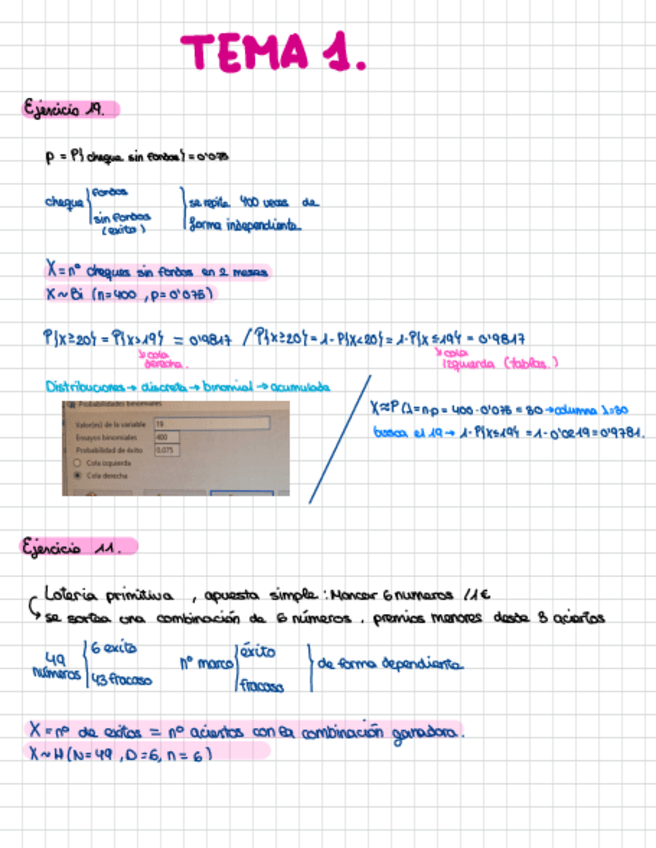 TEMA 1.
Ejercicio 19.
p = P{cheque sin fondos} = 0'075
cheque
fondos
sin fondos
(exito)
se repite 400 veces de
forma independiente
X = nº cheques sin fondos en 2 meses
X ~ Bi (n=400, p=0'075)
P{X≥20} = P{X>19} = 0'9817 / P{X≥20} = 1-P{X<20} = 1-P{X≤19} = 0'9817
↘ cola
derecha.
↘ cola
Izquierda (tablas.)
Distribuciones → discreta → binomial → acumulada
Probabilidades binomiales
Valor(es) de la variable 19
Ensayos binomiales 400
Probabilidad de éxito 0.075
Cola izquierda
Cola derecha
X≈P (λ=n·p = 400·0'075 = 30 → columna λ=30
busca el 19 → 1-P{X≤19} = 1-0'0219 = 0'9781.
Ejercicio 11.
Loteria primitiva, apuesta simple: Marcar 6 numeros /1€
se sortea una combinación de 6 números. premios menores desde 3 aciertos
49
números
6 exito
43 fracaso
nº marco
éxito
fracaso
de forma dependiente
X = nº de exitos = nº aciertos con la combinación ganadora.
X ~ H (N=49, D=6, n=6)